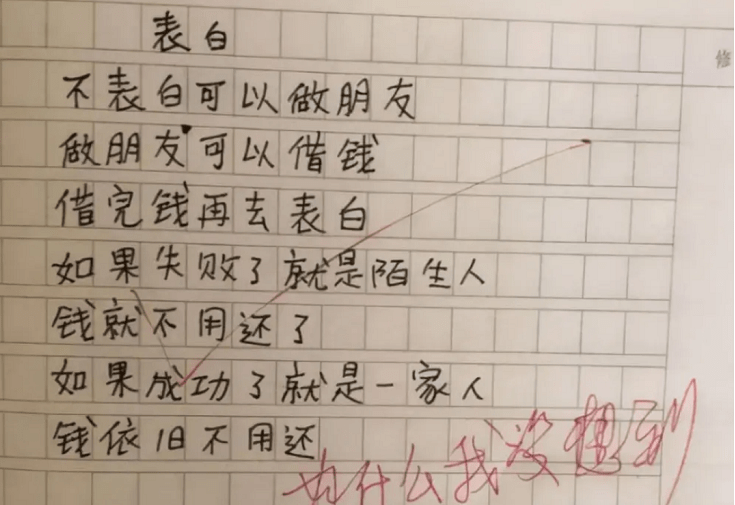 表白
修
不表白可以做朋友
做朋友可以借钱
借完钱再去表白
如果失败了就是陌生人
钱就不用还了
如果成功了就是一家人
钱依旧不用还
为什么我没想到